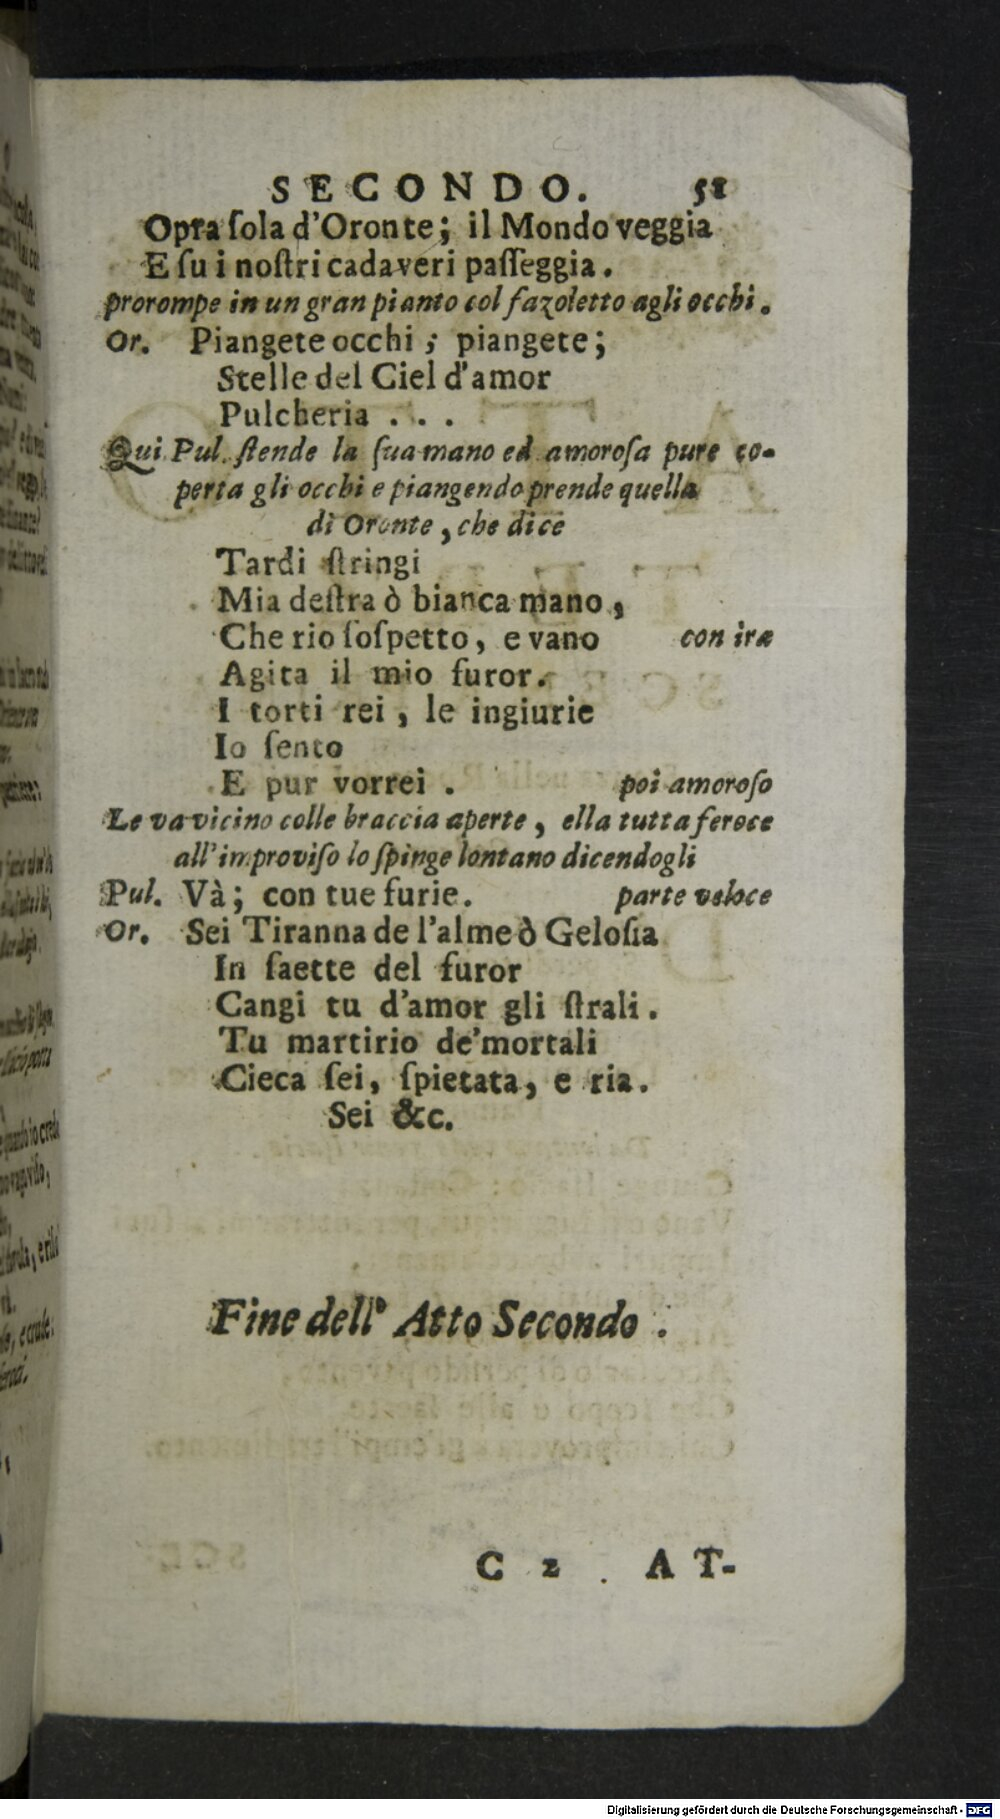 SECONDO. 51
Opra ſola d'Oronte; il Mondo veggia
E ſu i noſtri cadaveri paſſeggia.
prorompe in un gran pianto col fazoletto agli occhi.
Or. Piangete occhi ; piangete;
Stelle del Ciel d'amor
Pulcheria . . .
Qui Pul. ſtende la ſua mano ed amoroſa pure co-
perta gli occhi e piangendo prende quella
di Oronte, che dice
Tardi ſtringi
Mia deſtra ò bianca mano,
Che rio ſoſpetto, e vano con ira
Agita il mio furor.
I torti rei, le ingiurie
Io ſento
E pur vorrei . poi amoroſo
Le va vicino colle braccia aperte, ella tutta feroce
all'improviſo lo ſpinge lontano dicendogli
Pul. Và; con tue furie. parte veloce
Or. Sei Tiranna de l'alme ò Geloſia
In ſaette del furor
Cangi tu d'amor gli ſtrali.
Tu martirio de'mortali
Cieca ſei, ſpietata, e ria.
Sei &c.
Fine dell' Atto Secondo .
C 2 AT-
Digitalisierung gefördert durch die Deutsche Forschungsgemeinschaft - DFG